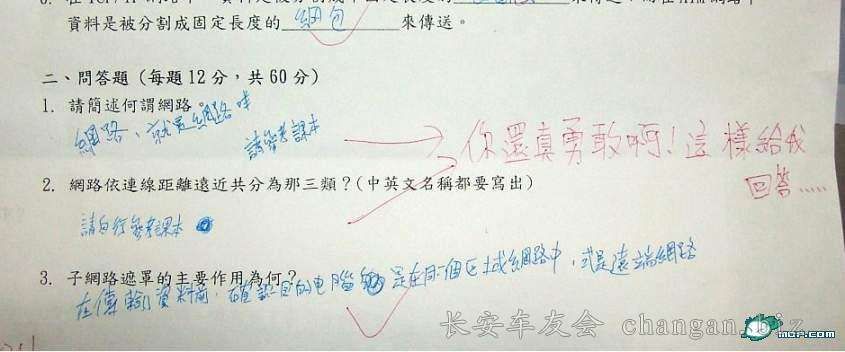 資料是被分割成固定長度的 網包 來傳送。
二、問答題（每題12分，共60分）
1. 請簡述何謂網路。
網路、就是網路咩
請參考課本
你還真勇敢啊！這樣給我
回答......
2. 網路依連線距離遠近共分為那三類？(中英文名稱都要寫出)
請自行參考課本
3. 子網路遮罩的主要作用為何？
在傳輸資料前，確認目的电腦 是在同個区域網路中，或是遠端網路
长安车友会 changan.biz
mop.com